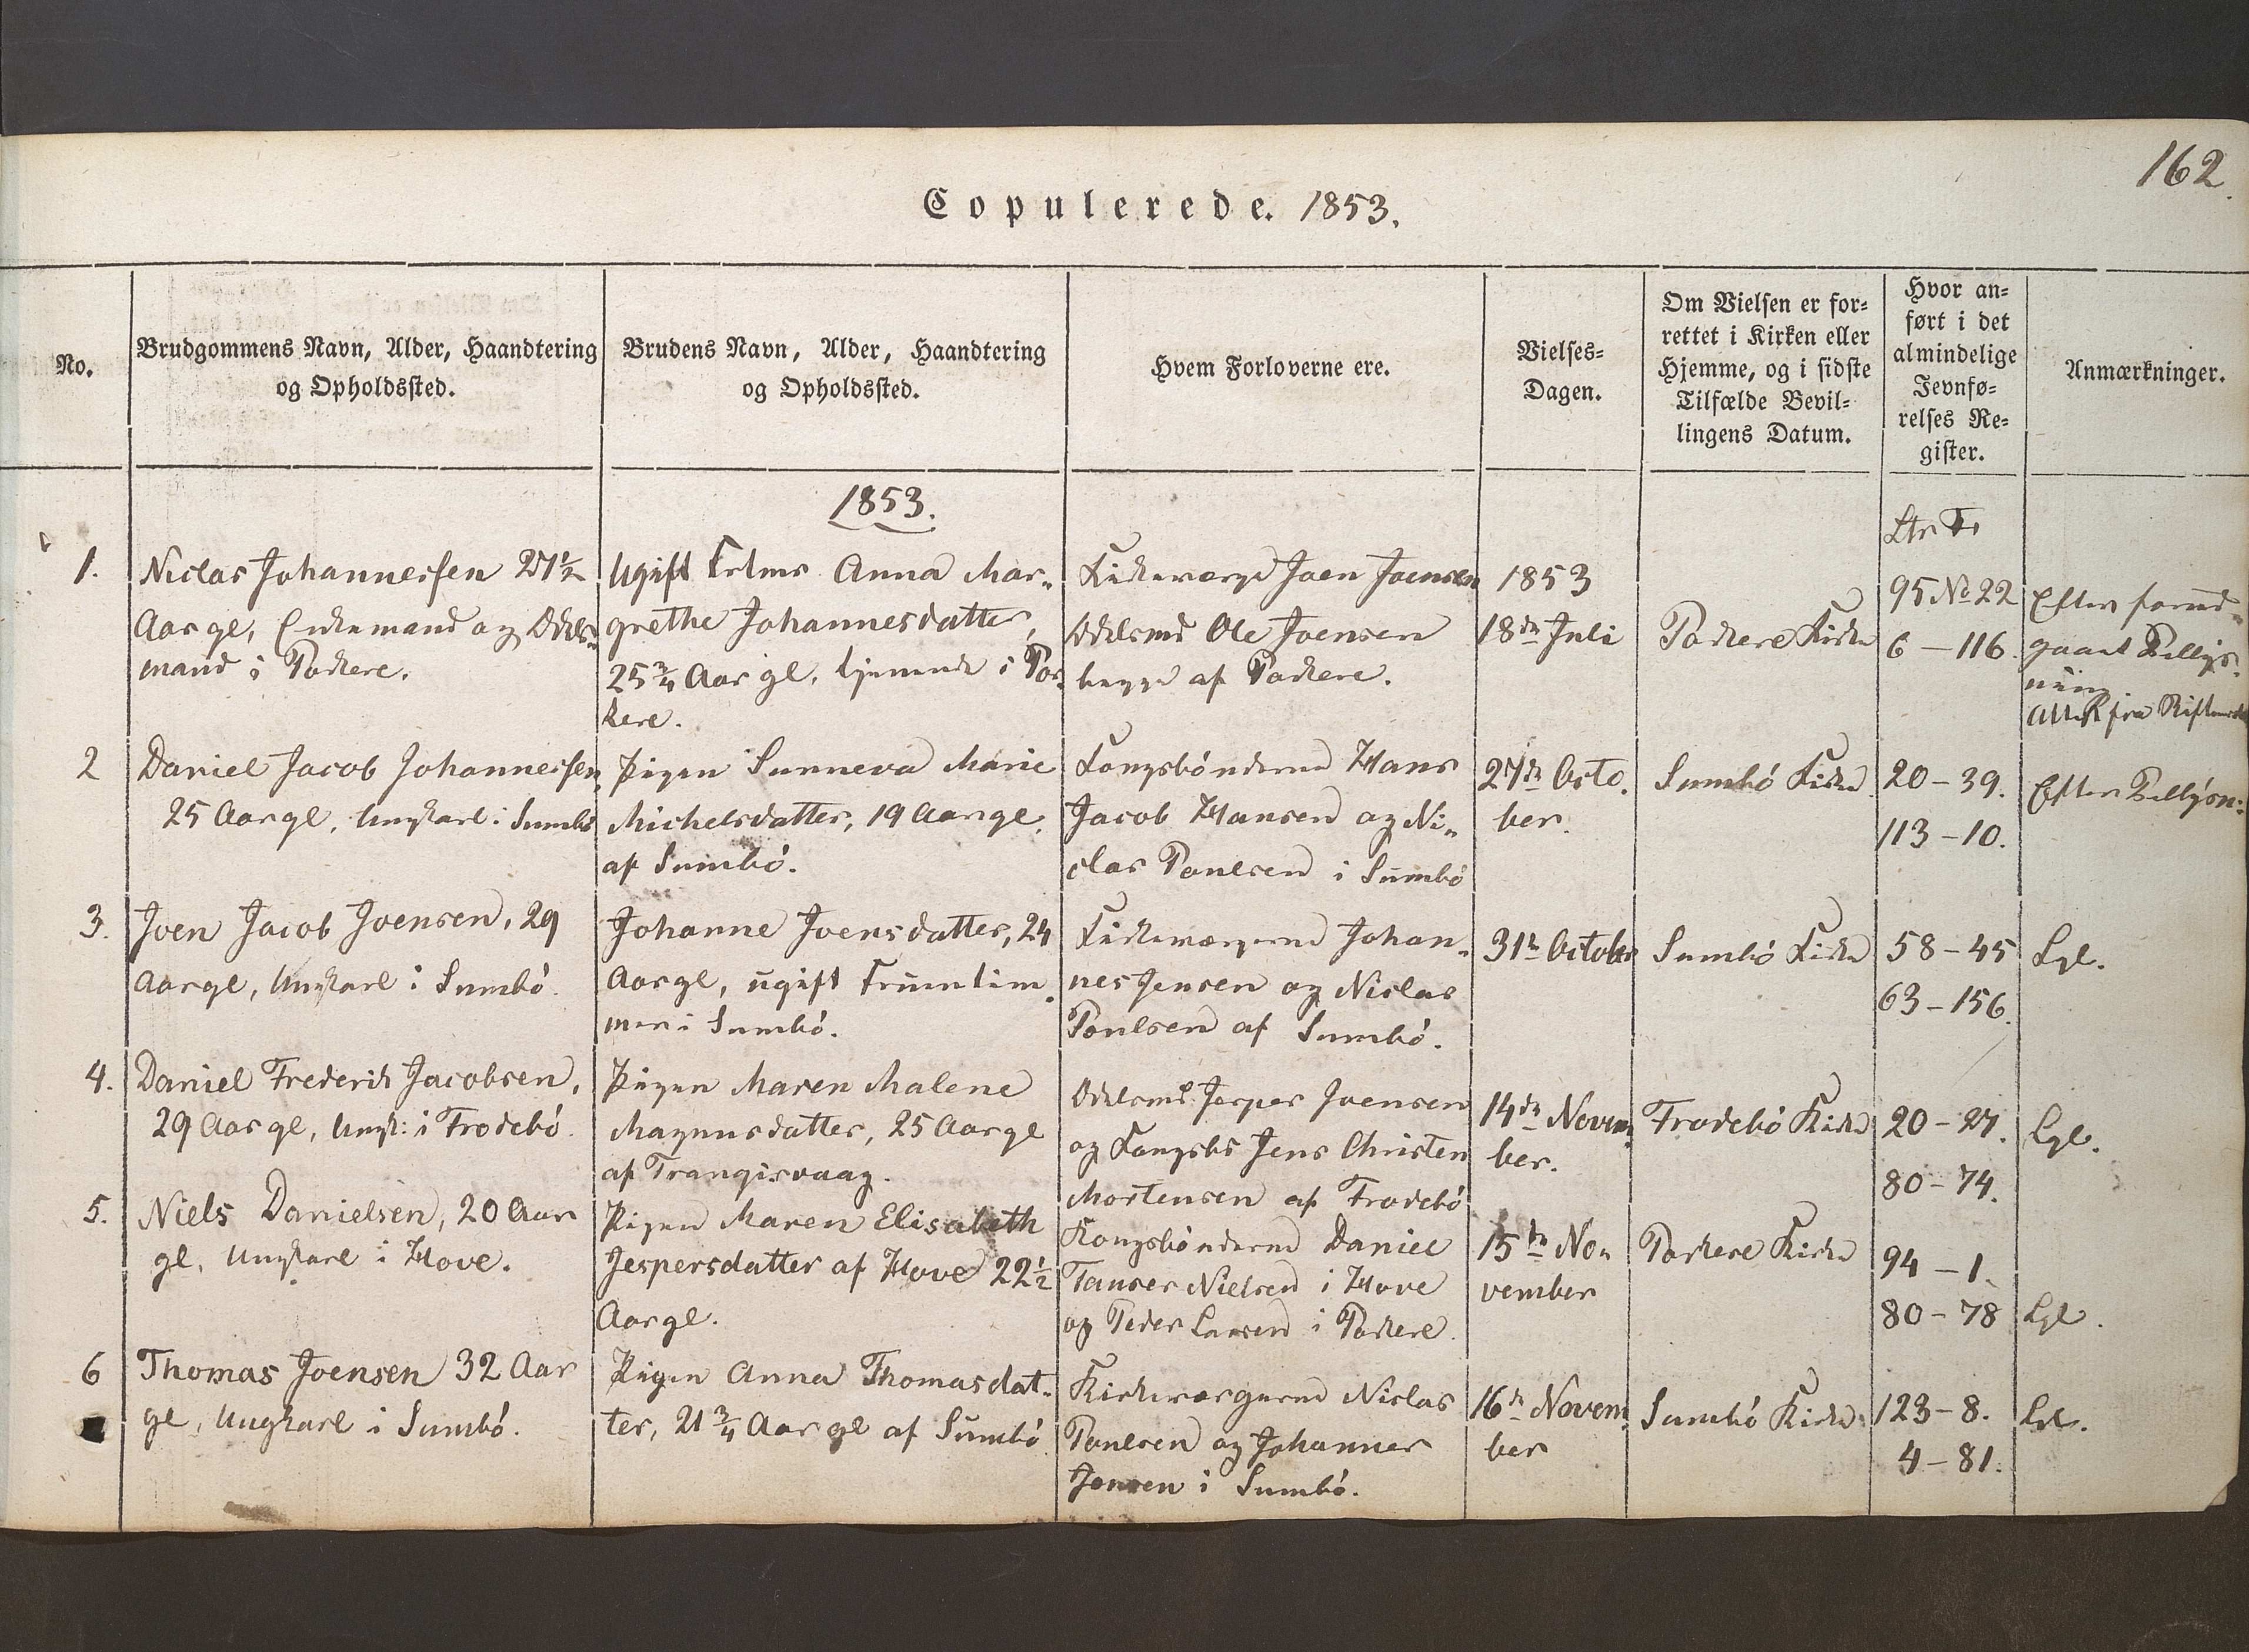 162.
Copulerede. 1853.
No.
Brudgommens Navn, Alder, Haandtering
og Opholdssted.
Brudens Navn, Alder, Haandtering
og Opholdssted.
Hvem Forloverne ere.
Vielses-
Dagen.
Om Vielsen er for-
rettet i Kirken eller
Hjemme, og i sidste
Tilfælde Bevil-
lingens Datum.
Hvor an-
ført i det
almindelige
Jevnfø-
relses Re-
gister.
Anmærkninger.
1853.
1.
Niclas Johannessen 27½
Aar gl, Enkemand og Odels-
mand i Porkere.
Ugift Frtmr Anna Mar-
grethe Johannesdatter,
25¾ Aar gl. tjenende i Por-
kere.
Kirkeværge Joen Joensen
Odelsmd Ole Joensen
begge af Porkere.
1853
18de Juli
Porkere Kirke
Ltr
95 No 22
6 - 116.
Efter forud-
gaaet Tillys-
ning
Att. fra
2
Daniel Jacob Johannessen,
25 Aar gl, Ungkarl i Sumbö
Pigen Sunneva Marie
Michelsdatter, 19 Aar gl.
af Sumbö.
Kongsbönderne Hans
Jacob Hansen og Ni-
clas Poulsen i Sumbö
27de Octo-
ber.
Sumbö Kirke
20 - 39.
113 - 10.
Efter Tillysn:
3.
Joen Jacob Joensen, 29
Aar gl, Ungkarl i Sumbö.
Johanne Joensdatter, 24
Aar gl, ugift Fruentim-
mer i Sumbö.
Kirkeværgerne Johan-
nes Jensen og Niclas
Poulsen af Sumbö.
31te October
Sumbö Kirke
58 - 45
63 - 156.
Lgl.
4.
Daniel Frederik Jacobsen,
29 Aar gl, Ungk: i Frodebö.
Pigen Maren Malene
Magnusdatter, 25 Aar gl
af Trangisvaag.
Odelsmd Jesper Joensen
og Kongsbd Jens Christen
Mortensen af Frodebö
14de Novem-
ber.
Frodebö Kirke
20 - 27.
80 - 74.
Lgl.
5.
Niels Danielsen, 20 Aar
gl, Ungkarl i Hove.
Pigen Maren Elisabeth
Jespersdatter af Hove 22½
Aar gl.
Kongsbönderne Daniel
Tauser Nielsen i Hove
og Peder Larsen i Porkere.
15de No-
vember
Porkere Kirke
94 - 1.
80 - 78
Lgl.
6
Thomas Joensen 32 Aar
gl, Ungkarl i Sumbö.
Pigen Anna Thomasdat-
ter, 21¾ Aar gl af Sumbö
Kirkeværgerne Niclas
Poulsen og Johannes
Jensen i Sumbö.
16de Novem-
ber
Sumbö Kirke.
123 - 8.
4 - 81.
Lgl.